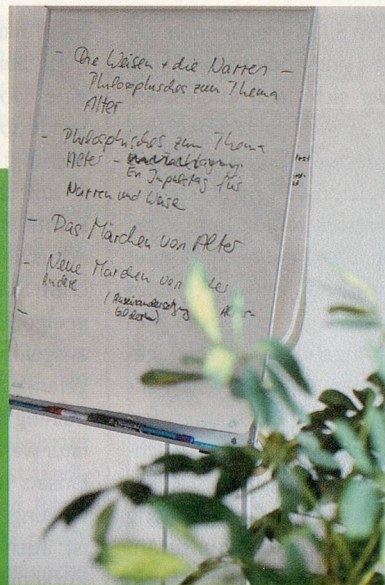 - Die Weisen + die Narren -
Philosophisches zum Thema
Alter
- Philosophisches zum Thema
Alter -
Ein Impulstag für
Narren und Weise
- Das Märchen vom Alter
- Neue Märchen vom
Andere
(Auseinandersetzung
-